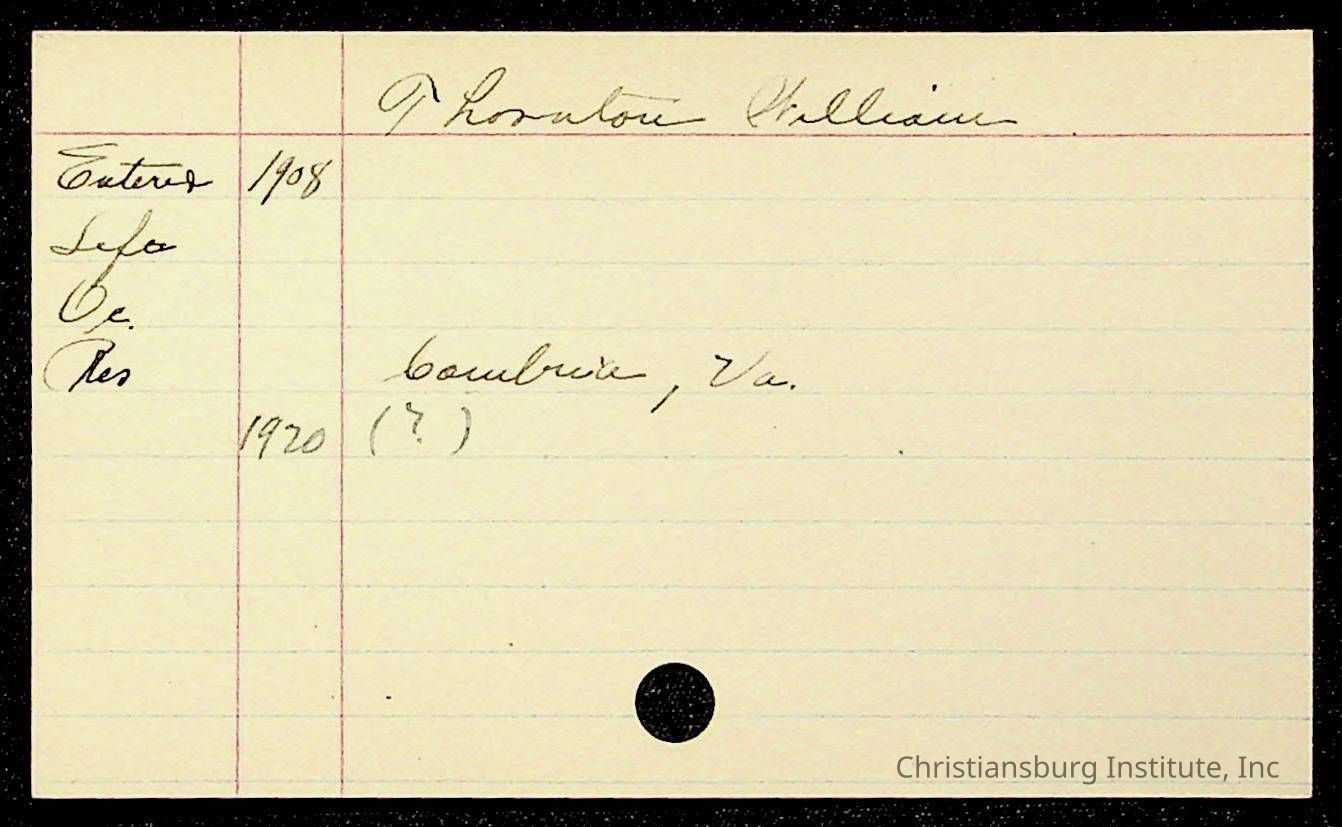 Thornton William
Entered 1908
Left
Oc.
Res Cambria, Va.
1920 (?)
Christiansburg Institute, Inc